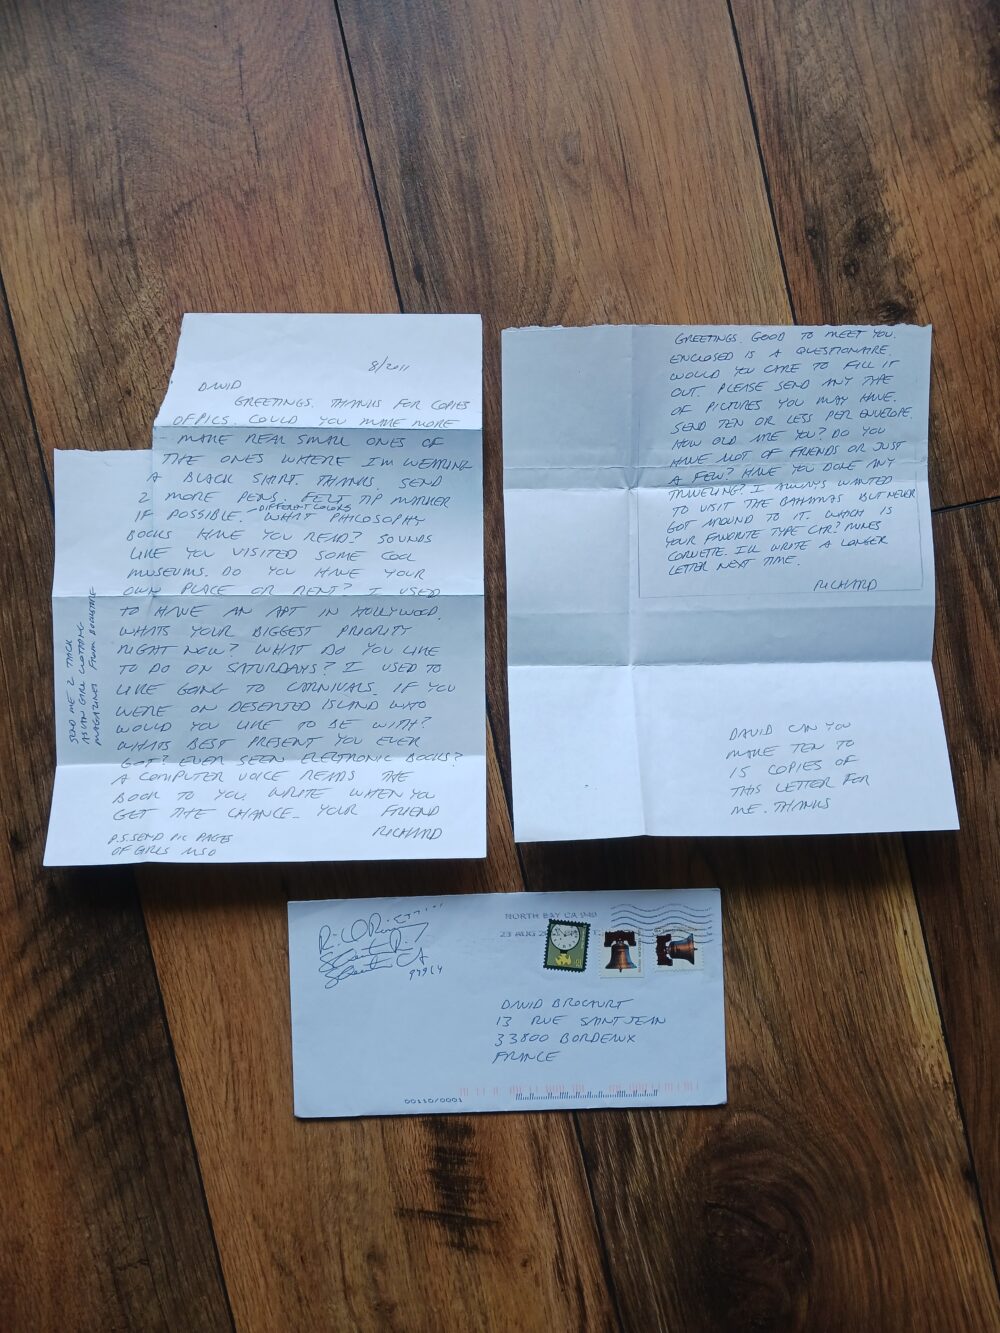 8/2011
DAVID
GREETINGS. THANKS FOR COPIES
OF PICS. COULD YOU MAKE MORE
MAKE REAL SMALL ONES OF
THE ONES WHERE I'M WEARING
A BLACK SHIRT. THANKS. SEND
2 MORE PENS. FELT TIP MARKER
IF POSSIBLE. -DIFFERENT COLORS WHAT PHILOSOPHY
BOOKS HAVE YOU READ? SOUNDS
LIKE YOU VISITED SOME COOL
MUSEUMS. DO YOU HAVE YOUR
OWN PLACE OR RENT? I USED
TO HAVE AN APT IN HOLLYWOOD.
WHATS YOUR BIGGEST PRIORITY
RIGHT NOW? WHAT DO YOU LIKE
TO DO ON SATURDAYS? I USED TO
LIKE GOING TO CARNIVALS. IF YOU
WERE ON DESERTED ISLAND WHO
WOULD YOU LIKE TO BE WITH?
WHATS BEST PRESENT YOU EVER
GOT? EVER SEEN ELECTRONIC BOOKS?
A COMPUTER VOICE READS THE
BOOK TO YOU. WRITE WHEN YOU
GET THE CHANCE. YOUR FRIEND
RICHARD
P.S. SEND PIC PAGES
OF GIRLS ALSO
SEND ME 2 THICK
ASIAN GIRL CLOTHING
MAGAZINES FROM BOOKSTORE
GREETINGS. GOOD TO MEET YOU.
ENCLOSED IS A QUESTIONAIRE.
WOULD YOU CARE TO FILL IT
OUT. PLEASE SEND ANY TYPE
OF PICTURES YOU MAY HAVE.
SEND TEN OR LESS PER ENVELOPE.
HOW OLD ARE YOU? DO YOU
HAVE ALOT OF FRIENDS OR JUST
A FEW? HAVE YOU DONE ANY
TRAVELING? I ALWAYS WANTED
TO VISIT THE BAHAMAS BUT NEVER
GOT AROUND TO IT. WHICH IS
YOUR FAVORITE TYPE CAR? MINES
CORVETTE. I'LL WRITE A LONGER
LETTER NEXT TIME.
RICHARD
DAVID CAN YOU
MAKE TEN TO
15 COPIES OF
THIS LETTER FOR
ME. THANKS
NORTH BAY CA 949
23 AUG
CA
94964
DAVID BROCOURT
13 RUE SAINT JEAN
33800 BORDEAUX
FRANCE
00110/0001